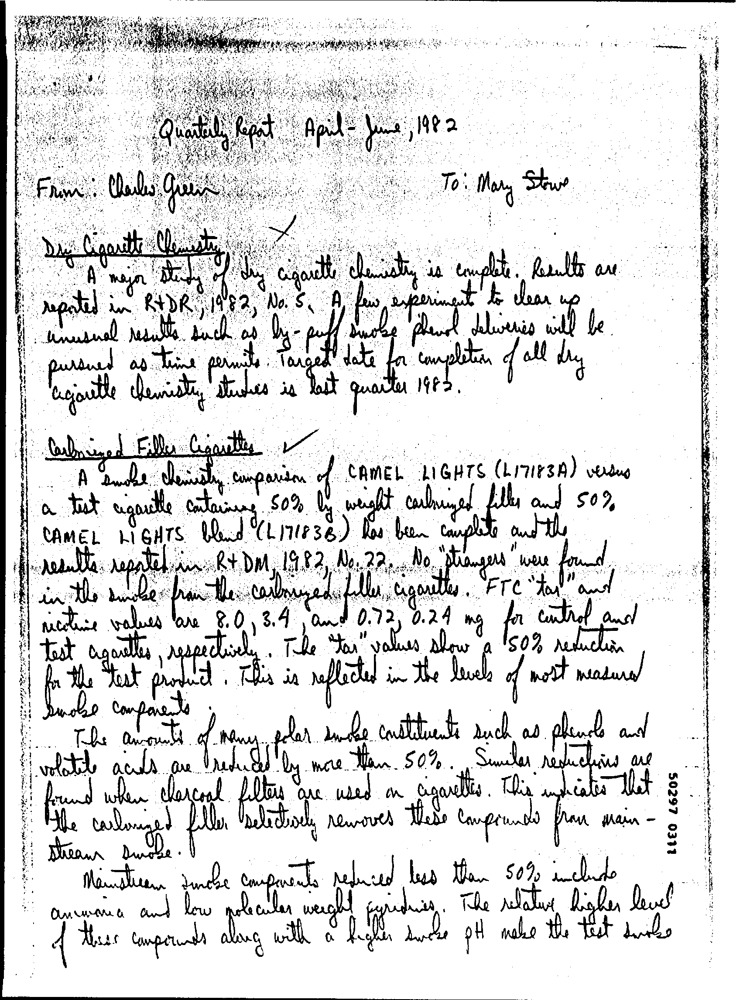 Quarterly Report April - June, 1982
From: Charles Green To: Mary Stowe
Dry Cigarette Chemistry
A major study of dry cigarette chemistry is complete. Results are
reported in R+DR, 1982, No. 5. A few experiments to clear up
unusual results such as by-puff smoke phenol deliveries will be
pursued as time permits. Target date for completion of all dry
cigarette chemistry studies is last quarter 1982.
Carbonized Filler Cigarettes ✓
A smoke chemistry comparison of CAMEL LIGHTS (L17183A) versus
a test cigarette containing 50% by weight carbonized filler and 50%
CAMEL LIGHTS blend (L17183B) has been complete and the
results reported in R+DM, 1982, No. 22. No "strangers" were found
in the smoke from the carbonized filler cigarettes. FTC "tar" and
nicotine values are 8.0, 3.4, and 0.72, 0.24 mg for control and
test cigarettes, respectively. The "tar" values show a 50% reduction
for the test product. This is reflected in the levels of most measured
smoke components.
The amounts of many polar smoke constituents such as phenols and
volatile acids are reduced by more than 50%. Similar reductions are
found when charcoal filters are used on cigarettes. This indicates that
the carbonized filler selectively removes these compounds from main-
stream smoke.
Mainstream smoke components reduced less than 50% include
ammonia and low molecular weight pyridines. The relative higher level
of these compounds along with a higher smoke pH make the test smoke
50297 0311